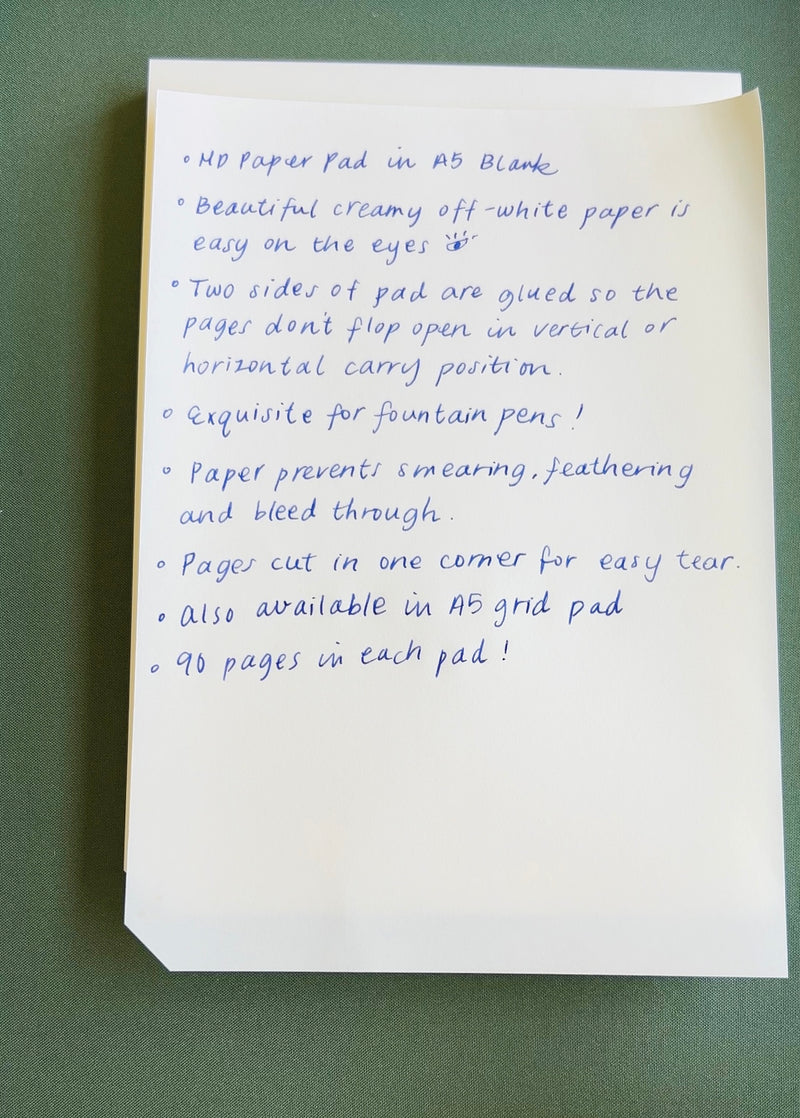 • MD Paper Pad in A5 Blank
• Beautiful creamy off-white paper is
easy on the eyes
• Two sides of pad are glued so the
pages don't flop open in vertical or
horizontal carry position.
• Exquisite for fountain pens!
• Paper prevents smearing, feathering
and bleed through.
• Pages cut in one corner for easy tear.
• Also available in A5 grid pad
• 90 pages in each pad!